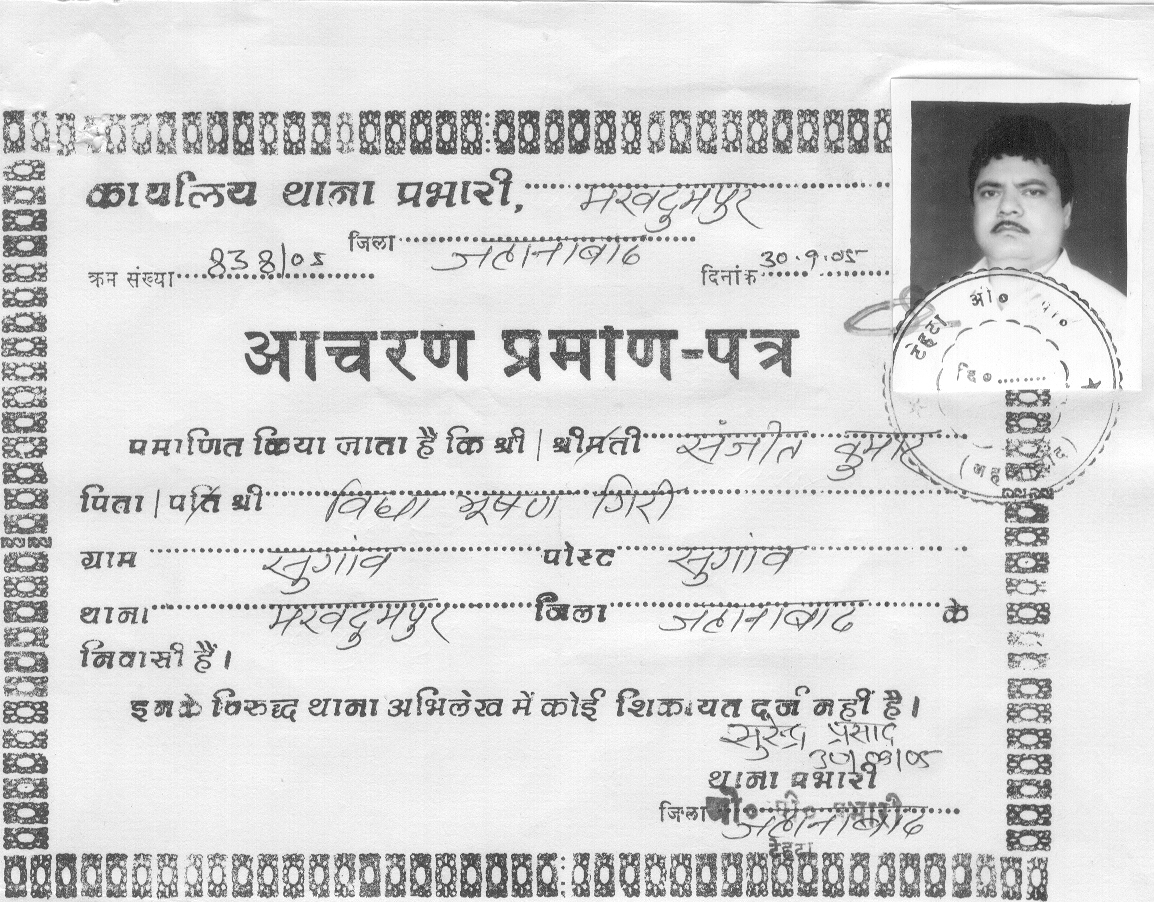 कार्यालय थाना प्रभारी, मखदुमपुर
जिला जहानाबाद
क्रम संख्या 838/05 दिनांक 30.9.05
आचरण प्रमाण-पत्र
प्रमाणित किया जाता है कि श्री | श्रीमती संजीत कुमार
पिता | पति श्री विद्या भूषण गिरी
ग्राम सुगांव पोस्ट सुगांव
थाना मखदुमपुर जिला जहानाबाद के
निवासी हैं।
इनके विरुद्ध थाना अभिलेख में कोई शिकायत दर्ज नहीं है।
सुरेन्द्र प्रसाद
30/09/05
थाना प्रभारी
जिला जहानाबाद
ओ० पी० प्रभारी
टेहटा
टेहटा ओ० पी०
दि०........